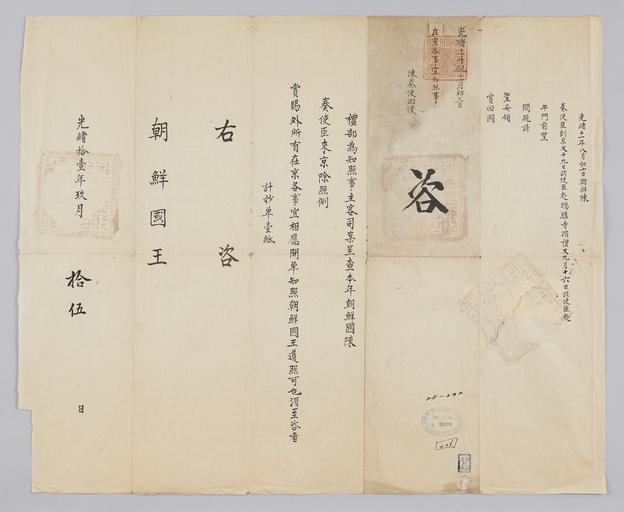 光緒十一年八月初七日朝鮮陳
奏使臣到京又十九日該使臣赴鴻臚寺演禮又九月十六日該使臣赴
午門前望
闕跪請
聖安領
賞回國
在京各事宜知照事
陳奏使回便
咨
禮部為知照事主客司案呈查本年朝鮮國陳
奏使臣來京除照例
賞賜外所有在京各事宜相應開單知照朝鮮國王遵照可也須至咨者
計抄單壹紙
右咨
朝鮮國王
光緒拾壹年玖月拾伍日